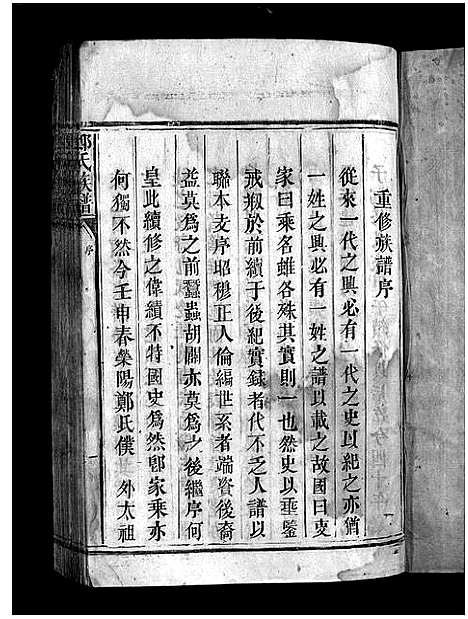 重修族譜序
從來一代之興必有一代之史以紀之亦猶
一姓之興必有一姓之譜以載之故國曰史
家曰乘名雖各殊其實則一也然史以垂鑒
戒叙於前續于後紀實録者代不乏人譜以
聯本支序昭穆正人倫編世系者端資後裔
益莫爲之前蠶蟲胡關亦莫爲之後繼序何
皇此續修之偉績不特國史爲然卽家乘亦
何獨不然今壬申春榮陽鄭氏僕 外太祖
鄭氏族譜
序